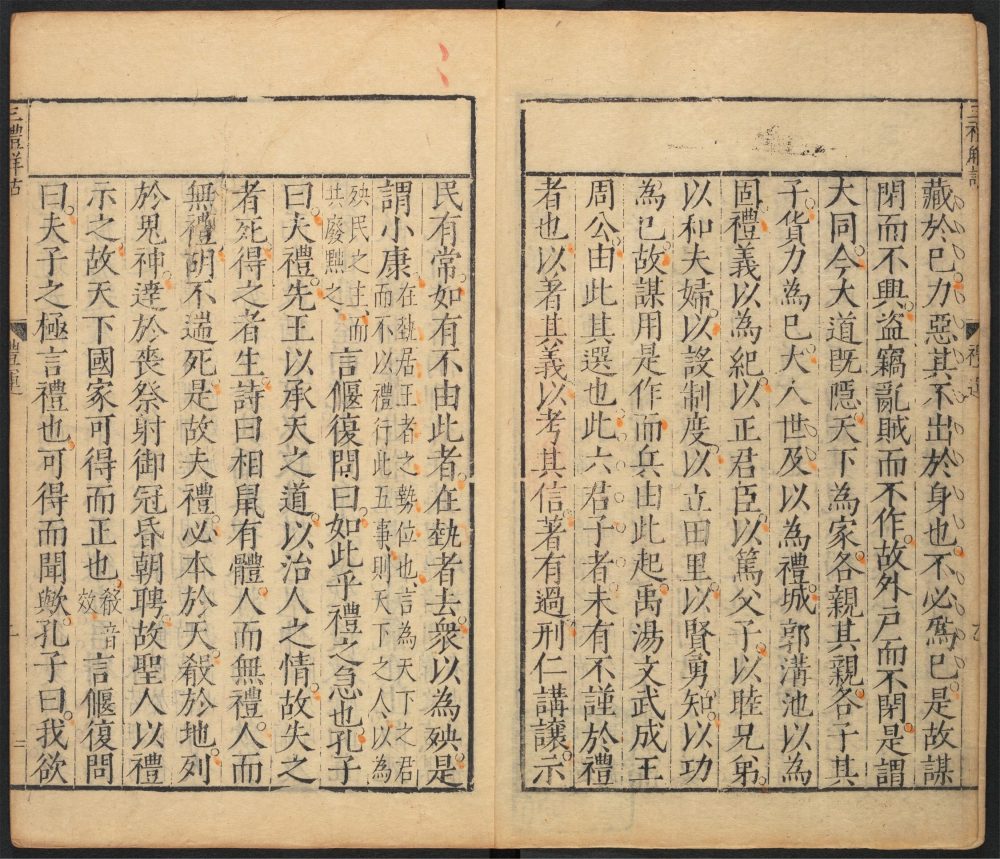 藏於已力惡其不出於身也不必爲已是故謀
閉而不興盜竊亂賊而不作故外戸而不閉是謂
大同今大道既隱天下爲家各親其親各子其
子貨力爲已大人世及以爲禮城郭溝池以爲
固禮義以爲紀以正君臣以篤父子以睦兄弟
以和夫婦以設制度以立田里以賢勇知以功
爲已故謀用是作而兵由此起禹湯文武成王
周公由此其選也此六君子者未有不謹於禮
者也以著其義以考其信著有過刑仁講讓示
民有常如有不由此者在埶者去衆以爲殃是
謂小康在埶居王者之埶位也言爲天下之君
而不以禮行此五事則天下之人以爲
殃民之主而
共廢黜之言偃復問曰如此乎禮之急也孔子
曰夫禮先王以承天之道以治人之情故失之
者死得之者生詩曰相鼠有體人而無禮人而
無禮胡不遄死是故夫禮必本於天殽於地列
於鬼神達於喪祭射御冠昏朝聘故聖人以禮
示之故天下國家可得而正也殽音
效言偃復問
曰夫子之極言禮也可得而聞歟孔子曰我欲
三禮解詁
禮運
禮運
三